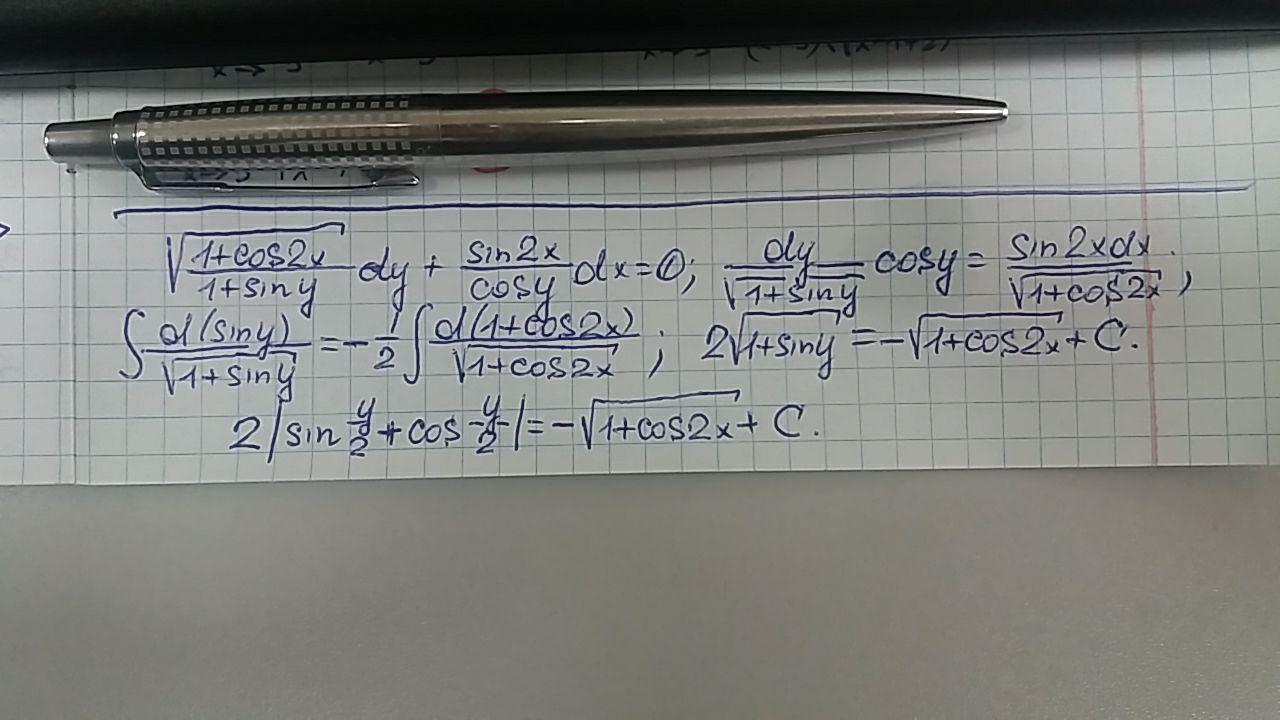 √((1+cos2x)/(1+siny)) dy + (sin2x/cosy) dx = 0; (dy/√(1+siny)) cosy = sin2xdx/√(1+cos2x);
∫ d(siny)/√(1+siny) = -1/2 ∫ d(1+cos2x)/√(1+cos2x); 2√(1+siny) = -√(1+cos2x) + C.
2|sin y/2 + cos y/2| = -√(1+cos2x) + C.